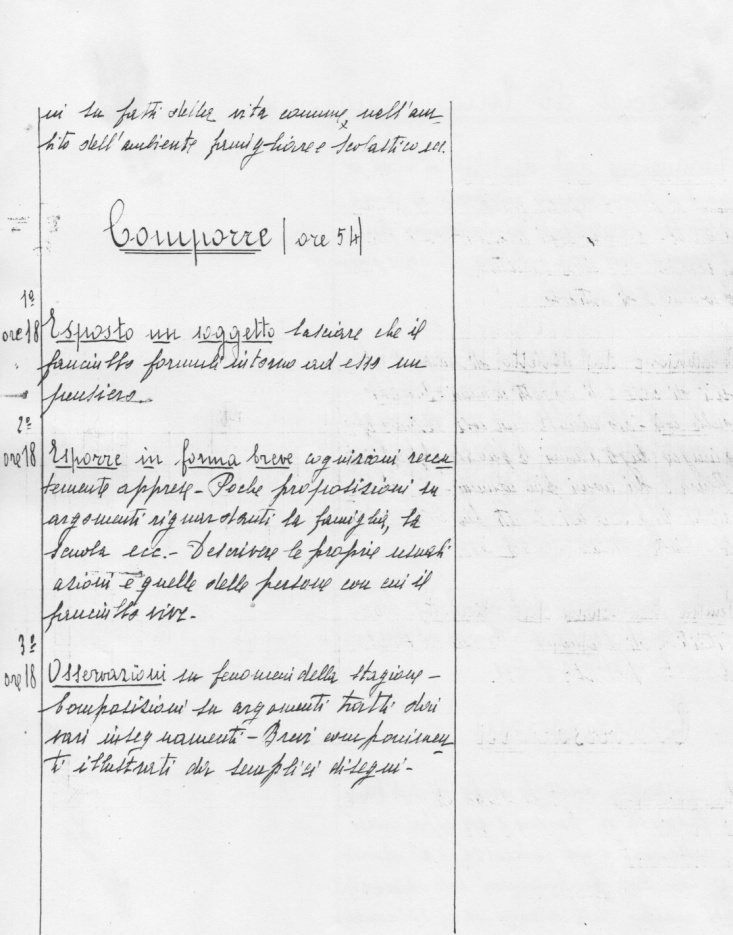 ni su fatti della vita comune, nell'am-
bito dell'ambiente famigliare e scolastico ecc.
Comporre | ore 54|
1º
ore 18 Esposto un soggetto lasciare che il
fanciullo formuli intorno ad esso un
pensiero.
2º
ore 18 Esporre in forma breve cognizioni recen
temente apprese - Poche proposizioni su
argomenti riguardanti la famiglia, la
scuola ecc. - Descrivere le proprie usuali
azioni e quelle delle persone con cui il
fanciullo vive -
3º
ore 18 Osservazioni su fenomeni della stagione -
Composizioni su argomenti tratti dai
vari insegnamenti - Brevi componimen
ti illustrati da semplici disegni -